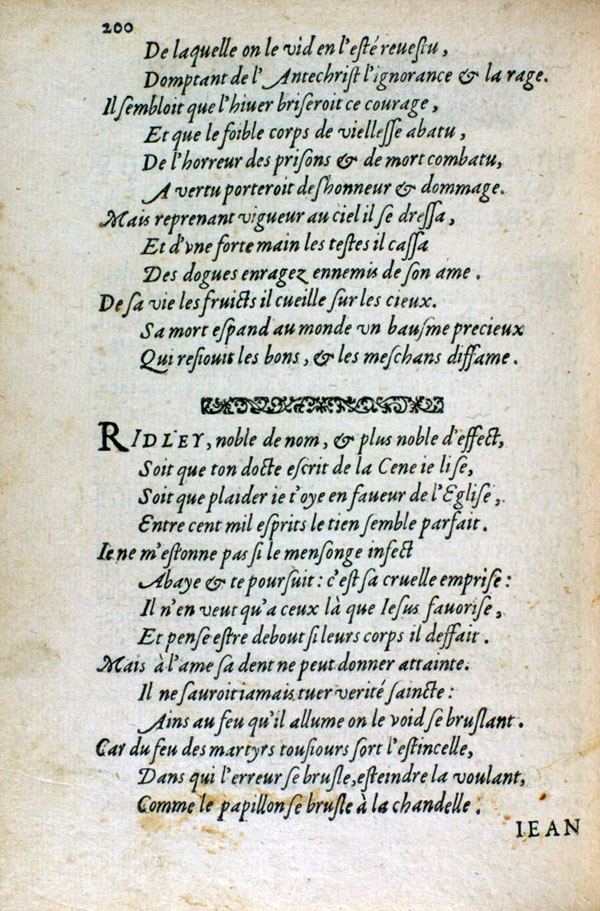 200
De laquelle on le vid en l'esté reuestu,
Domptant de l'Antechrist l'ignorance & la rage.
Il sembloit que l'hiuer briseroit ce courage,
Et que le foible corps de viellesse abatu,
De l'horreur des prisons & de mort combatu,
A vertu porteroit deshonneur & dommage.
Mais reprenant vigueur au ciel il se dressa,
Et d'vne forte main les testes il cassa
Des dogues enragez ennemis de son ame.
De sa vie les fruicts il cueille sur les cieux.
Sa mort espand au monde vn bausme precieux
Qui resiouit les bons, & les meschans diffame.
RIDLEY, noble de nom, & plus noble d'effect,
Soit que ton docte escrit de la Cene ie lise,
Soit que plaider ie t'oye en faueur de l'Eglise,
Entre cent mil esprits le tien semble parfait.
Ie ne m'estonne pas si le mensonge infect
Abaye & te poursuit: c'est sa cruelle emprise:
Il n'en veut qu'a ceux là que Iesus fauorise,
Et pense estre debout si leurs corps il deffait.
Mais à l'ame sa dent ne peut donner attainte.
Il ne sauroit iamais tuer verité saincte:
Ains au feu qu'il allume on le void se bruslant.
Car du feu des martyrs tousiours sort l'estincelle,
Dans qui l'erreur se brusle, esteindre la voulant,
Comme le papillon se brusle à la chandelle.
IEAN